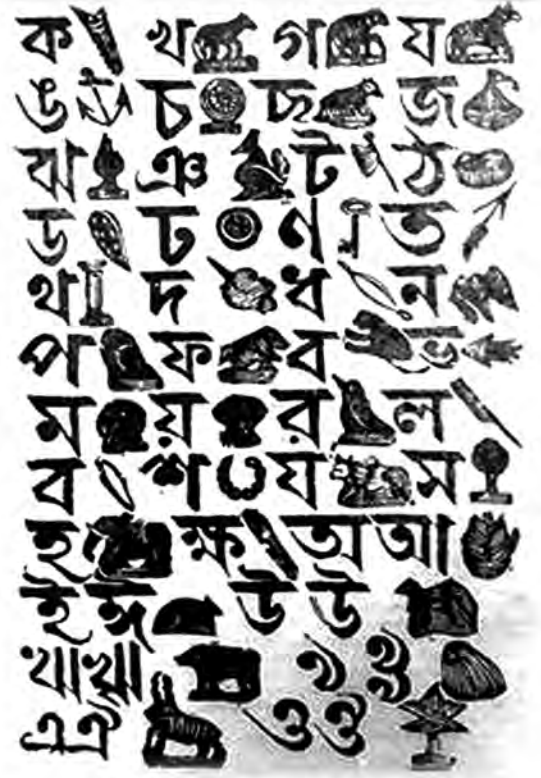 ক খ গ য
ঙ চ ছ জ
ঝ ঞ ট ঠ
ড ঢ ণ ত
থ দ ধ ন
প ফ ব ভ
ম য় র ল
ব শ য স
হ ক্ষ অ আ
ই ঈ উ ঊ
ঋ ৠ ঌ ৡ
এ ঐ ও ঔ